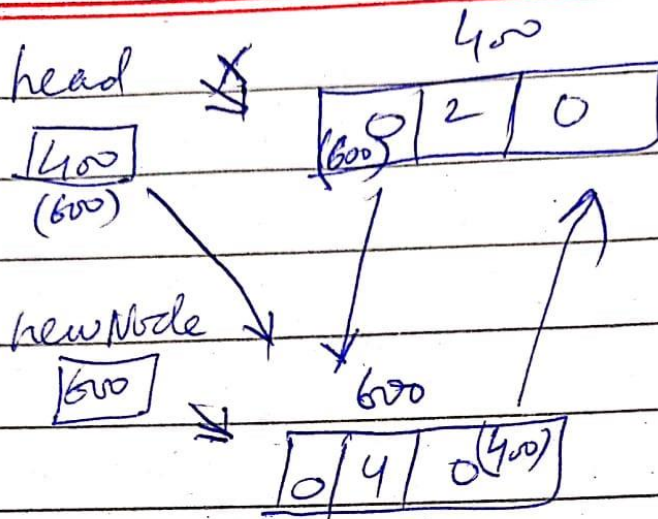 head 400
400 (600) 0 2 0
(600)
newNode
600 600
0 4 0 (400)